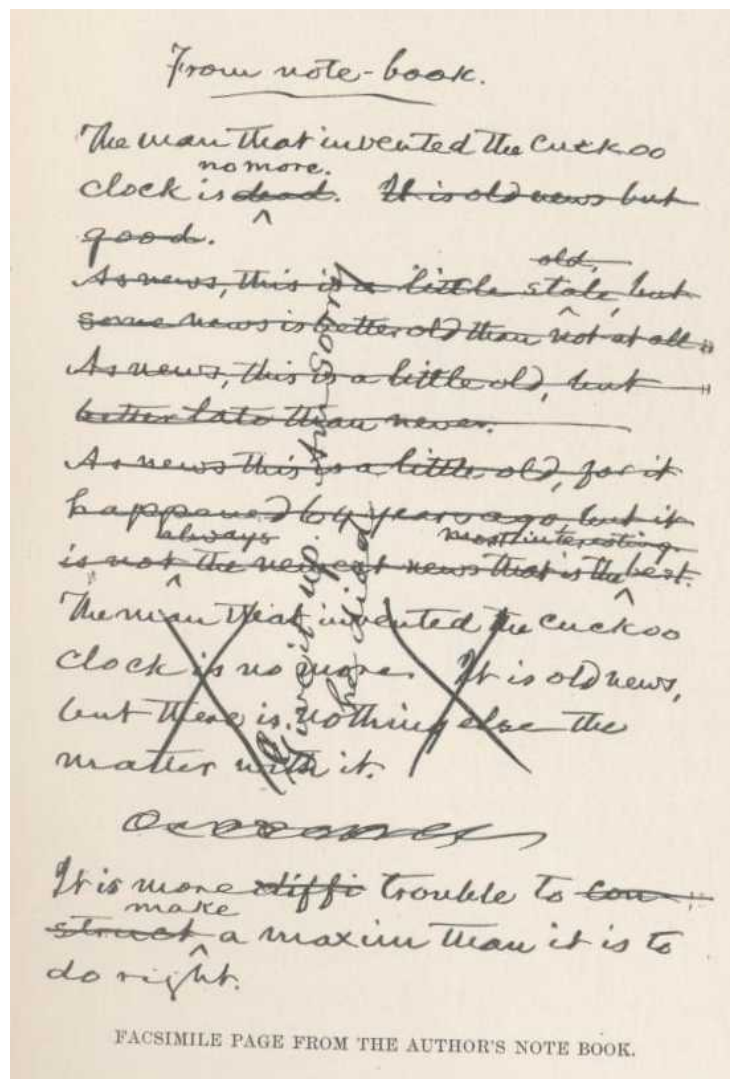 From note-book.
The man that invented the cuckoo
no more.
clock is dead. It is old news but
good.
old,
As news, this is a little stale, but
some news is better old than not at all.
As news, this is a little old, but
better late than never.
As news this is a little old, for it
happened 64 years ago but it
always most interesting
is not the newest news that is the best.
The man that invented the cuckoo
clock is no more. It is old news,
but there is nothing else the
matter with it.
Give it up. I'm sorry
he died
It is more diffi trouble to con-
make
struct a maxim than it is to
do right.
FACSIMILE PAGE FROM THE AUTHOR'S NOTE BOOK.